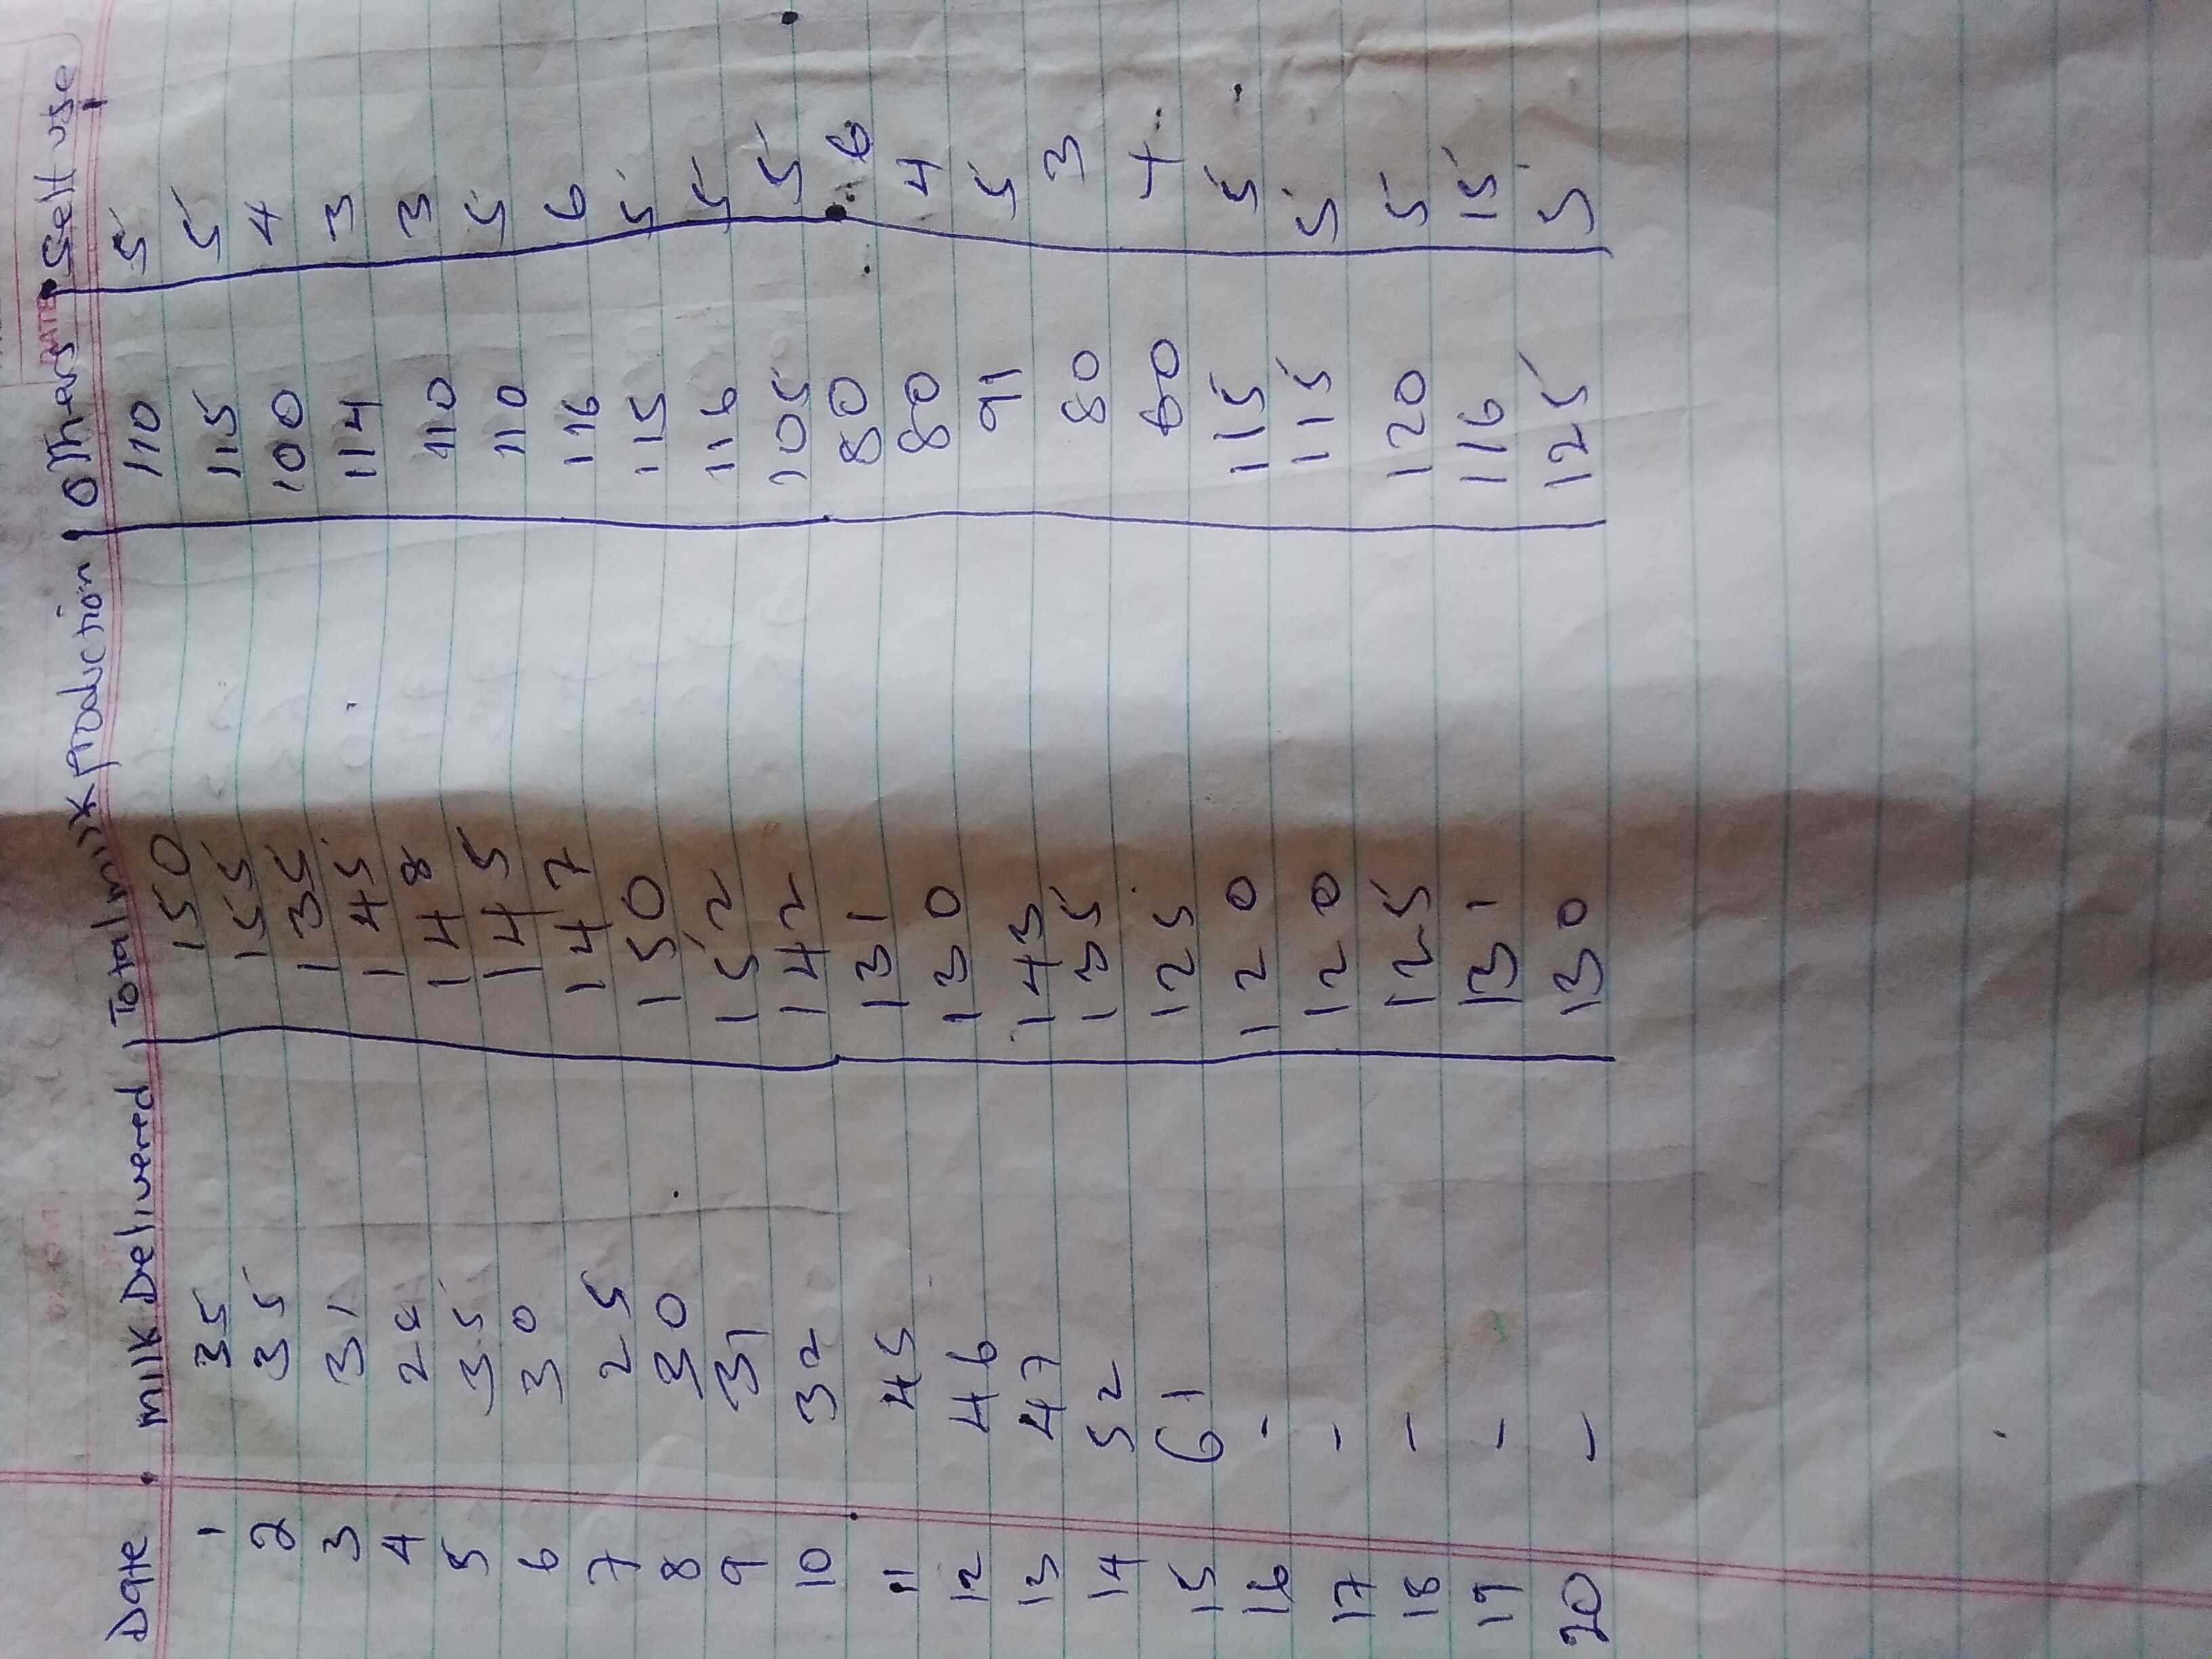 Date milk Delivered Total milk production others Self use
1 35 150 110 5
2 35 155 115 5
3 31 135 100 4
4 28 145 114 3
5 35 148 110 3
6 30 145 110 5
7 25 147 116 6
8 30 150 115 5
9 31 152 116 5
10 32 142 105 5
11 45 131 80 6
12 46 130 80 4
13 47 143 91 5
14 52 135 80 3
15 61 125 60 4
16 - 120 115 5
17 - 120 115 5
18 - 125 120 5
19 - 131 116 15
20 - 130 125 5